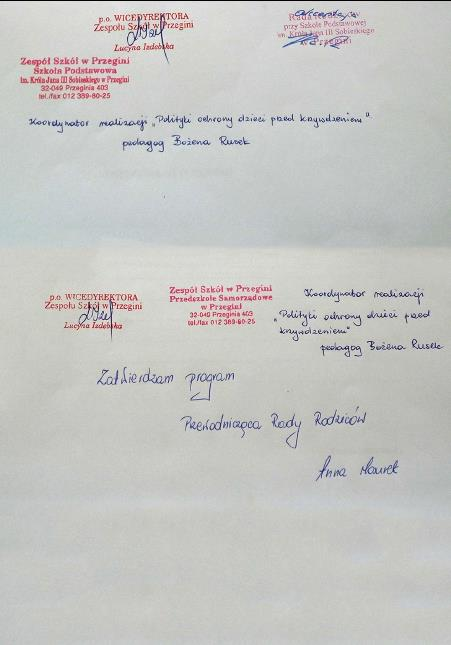 p.o. WICEDYREKTORA
Zespołu Szkół w Przegini
Lucyna Izdebska
Rada Rodziców
przy Szkole Podstawowej
im. Króla Jana III Sobieskiego
w Przegini
Zespół Szkół w Przegini
Szkoła Podstawowa
im. Króla Jana III Sobieskiego w Przegini
32-049 Przeginia 403
tel./fax 012 389-60-25
Koordynator realizacji „Polityki ochrony dzieci przed krzywdzeniem"
pedagog Bożena Rusek
p.o. WICEDYREKTORA
Zespołu Szkół w Przegini
Lucyna Izdebska
Zespół Szkół w Przegini
Przedszkole Samorządowe
w Przegini
32-049 Przeginia 403
tel./fax 012 389-60-25
Koordynator realizacji
„Polityki ochrony dzieci przed
krzywdzeniem"
pedagog Bożena Rusek
Zatwierdzam program
Przewodnicząca Rady Rodziców
Anna